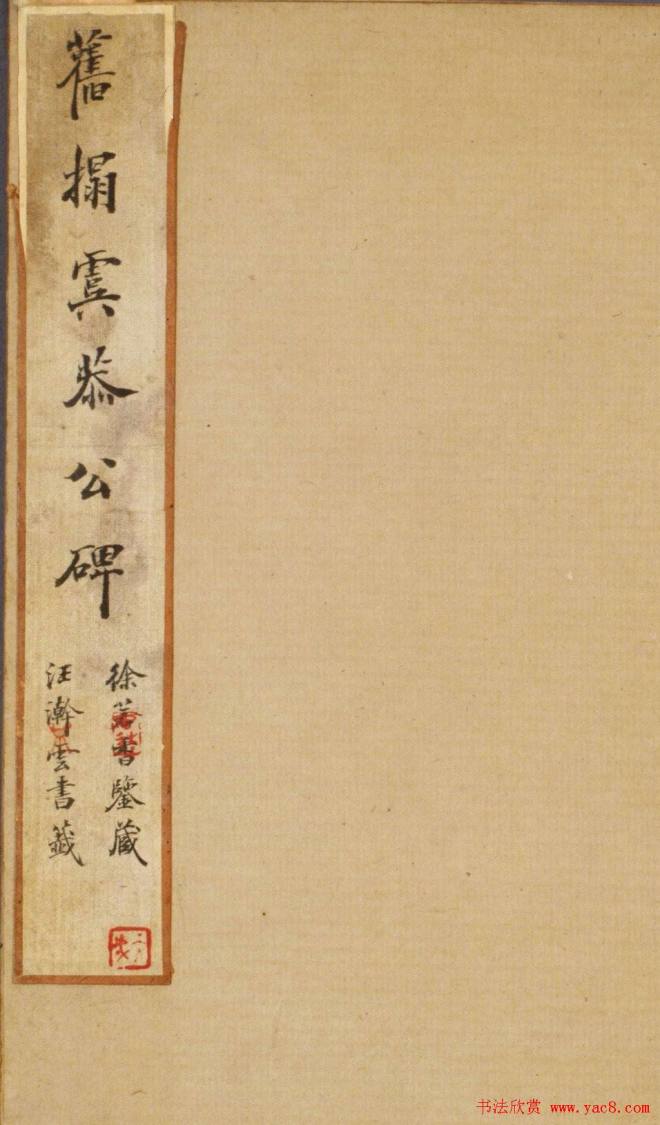 舊搨虞恭公碑
徐若曾鑒藏
汪瀚雲書籤
书法欣赏 www.yac8.com